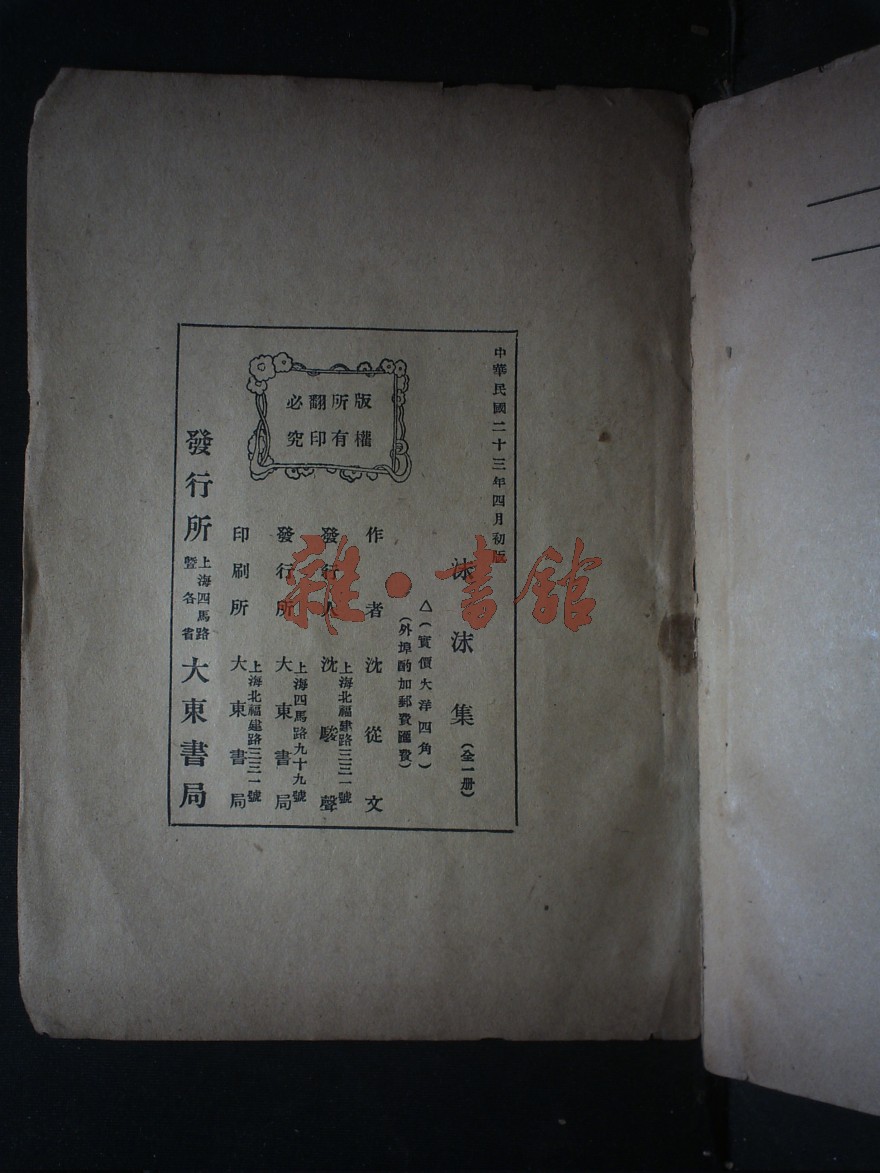 中華民國二十三年四月初版
沫沫集（全一册）
△（實價大洋四角）
（外埠酌加郵費匯費）
版權
所有
翻印
必究
作者 沈從文
發行人 沈駿聲
上海北福建路三三一號
發行所 大東書局
上海四馬路九十九號
印刷所 大東書局
上海北福建路三三一號
發行所 上海四馬路
暨各省 大東書局
雜·書館